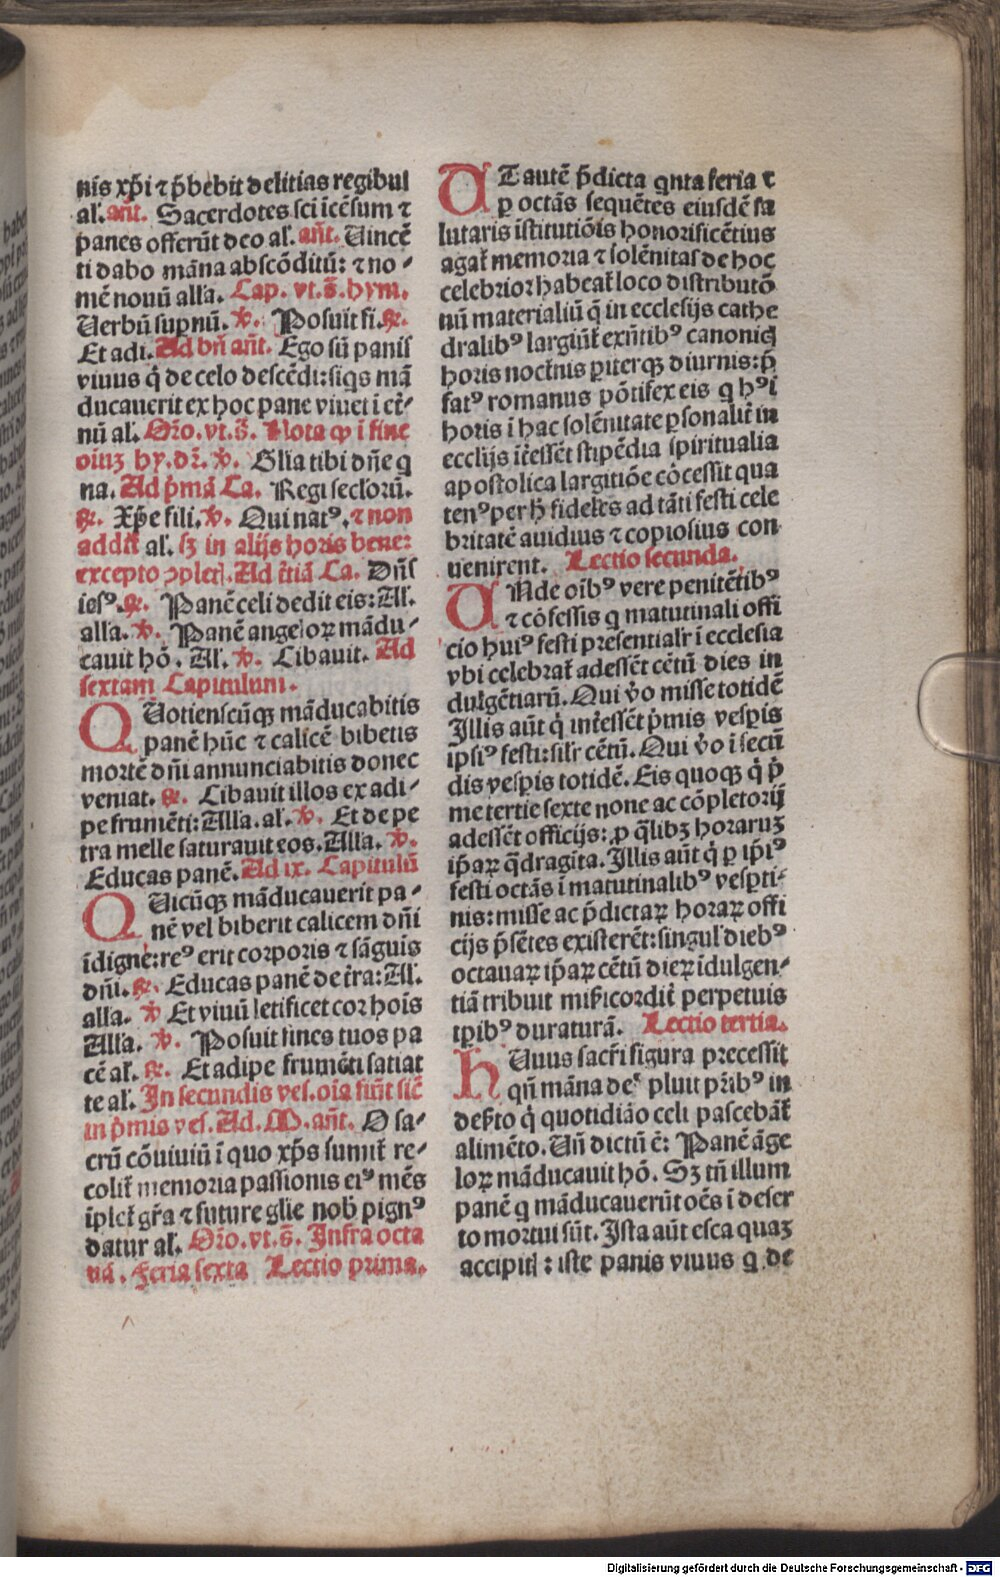 nis xp̄i ⁊ p̄bebit delitias regibus
al̓. añt. Sacerdotes sci īcēsum ⁊
panes offerūt deo al̓. añt. Uincē
ti dabo māna abscōditū: ⁊ no-
mē nouū alla. Cap. vt. s̄. hym.
Uerbū supnū. ℣. Posuit fi. ℟.
Et adi. Ad bn̄ añt. Ego sū panis
viuus q̇ de celo descēdi: siqs mā
ducauerit ex hoc pane viuet ī et̓-
nū al̓. Oro. vt. s̄. Nota ꝙ ī fine
oīuꝫ hy. dr̄. ℣. Glia tibi dn̄e q
na. Ad p̄mā Ca. Regi seclorū.
℟. Xp̄e fili. ℣. Qui natꝰ. ⁊ non
addit̄ al̓. sꝫ in alijs horis bene:
excepto ↄplet̄. Ad t̄tiā Ca. Dn̄s
iesꝰ. ℟. Panē celi dedit eis: Al̓.
alla. ℣. Panē angeloꝝ mādu-
cauit hō. Al̓. ℣. Cibauit. Ad
sextam Capitulum.
QUotienscūqꝫ māducabitis
panē hūc ⁊ calicē bibetis
mortē dn̄i annunciabitis donec
veniat. ℟. Cibauit illos ex adi-
pe frumēti: Alla. al̓. ℣. Et de pe
tra melle saturauit eos. Alla. ℣.
Educas panē. Ad ix. Capitulū
QUicūqꝫ māducauerit pa-
nē vel biberit calicem dn̄i
īdigne: reꝰ erit corporis ⁊ sāguis
dn̄i. ℟. Educas panē de t̄ra: Al̓.
alla. ℣ Et vinū letificet cor hoīs
Alla. ℣. Posuit fines tuos pa
cē al̓. ℟. Et adipe frumēti satiat
te al̓. In secundis ves. oīa fiūt sic̄
in p̄mis ves. Ad. M. añt. O sa-
crū cōuiuiū ī quo xp̄s sumit̄ re-
colit̄ memoria passionis eiꝰ mēs
īplet̄ gr̄a ⁊ future glie nob̄ pignꝰ
datur al̓. Oro. vt. s̄. Infra octa
uā. Feria sexta Lectio prima.
UT autē p̄dicta qnta feria ⁊
ꝑ octās sequētes eiusdē sa
lutaris īstitutiōis honorificētius
agat̄ memoria ⁊ solēnitas de hoc
celebrior habeat̄ loco distributō
nū materialiū q̄ in ecclesijs cathe
dralibꝰ largiūt̄ exn̄tibꝰ canonicꝭ
horis noct̄nis ꝑiterqꝫ diurnis: p̄
fatꝰ romanus pōtifex eis q hꝰī
horis ī hac solēnitate ꝑsonalit̄ in
ecclijs it̄essēt stipēdia spiritualia
apostolica largitiōe cōcessit qua
tenꝰ per h̄ fideles ad tāti festi cele
britatē auidius ⁊ copiosius con
uenirent. Lectio secunda.
UNde oībꝰ vere penitētibꝰ
⁊ cōfessis q matutinali offi
cio huiꝰ festi presentialr̄ ī ecclesia
vbi celebrat̄ adessēt cētū dies in
dulgētiarū. Qui v̄o misse totidē
Illis aūt q̇ int̄essēt p̄mis vesꝑis
ipsiꝰ festi: silr̄ cētū. Qui v̄o ī secū
dis vesꝑis totidē. Eis quoqꝫ q̇ p̄
me tertie sexte none ac cōpletorij
adessēt officijs: ꝓ q̄libꝫ horaruꝫ
ip̄aꝝ q̄dragīta. Illis aūt q̇ ꝑ ip̄iꝰ
festi octās ī matutinalibꝰ vesꝑti-
nis: misse ac p̄dictaꝝ horaꝝ offi
cijs p̄sētes existerēt: singul̓ diebꝰ
octauaꝝ ip̄aꝝ cētū dieꝝ īdulgen-
tiā tribuit mis̄icordit̄ perpetuis
tp̄ibꝰ duraturā. Lectio tertia.
HUius sacr̄i figura precessit
qn̄ māna deꝰ pluit pr̄ibꝰ in
des̄to q̇ quotidiāo celi pascebāt̄
alimēto. Un̄ dictū ē: Panē āge
loꝝ māducauit hō. Sꝫ tn̄ illum
panē q māducauerūt oēs ī deser
to mortui sūt. Ista aūt esca quaꝫ
accipitꝭ: iste panis viuus q de
Digitalisierung gefördert durch die Deutsche Forschungsgemeinschaft - DFG